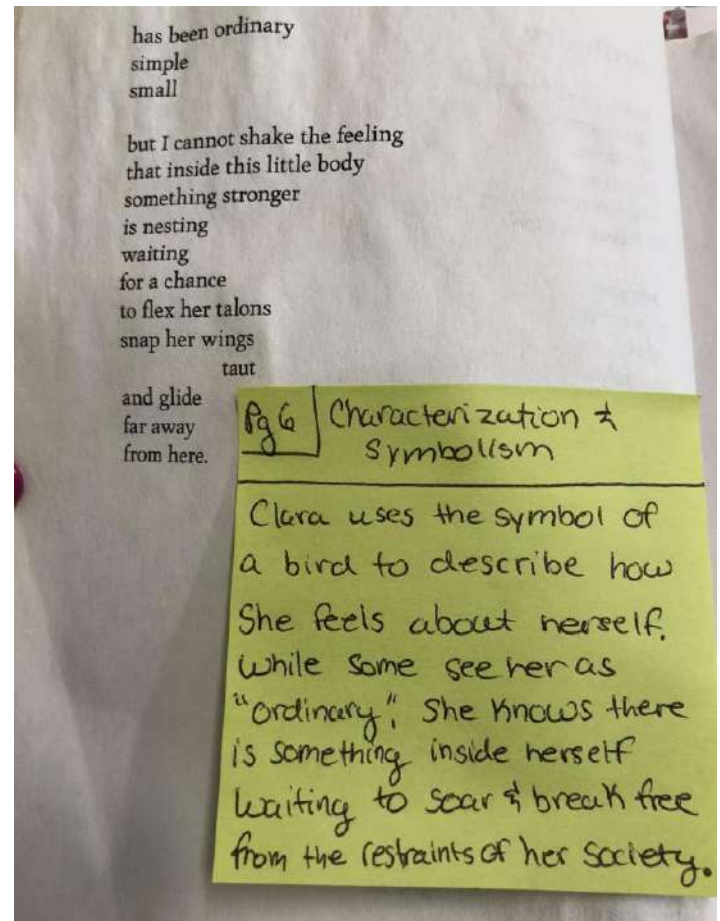 has been ordinary
simple
small
but I cannot shake the feeling
that inside this little body
something stronger
is nesting
waiting
for a chance
to flex her talons
snap her wings
taut
and glide
far away
from here.
Pg 6 Characterization &
Symbolism
Clara uses the symbol of
a bird to describe how
She feels about herself.
While some see her as
"ordinary", She knows there
is something inside herself
waiting to soar & break free
from the restraints of her society.